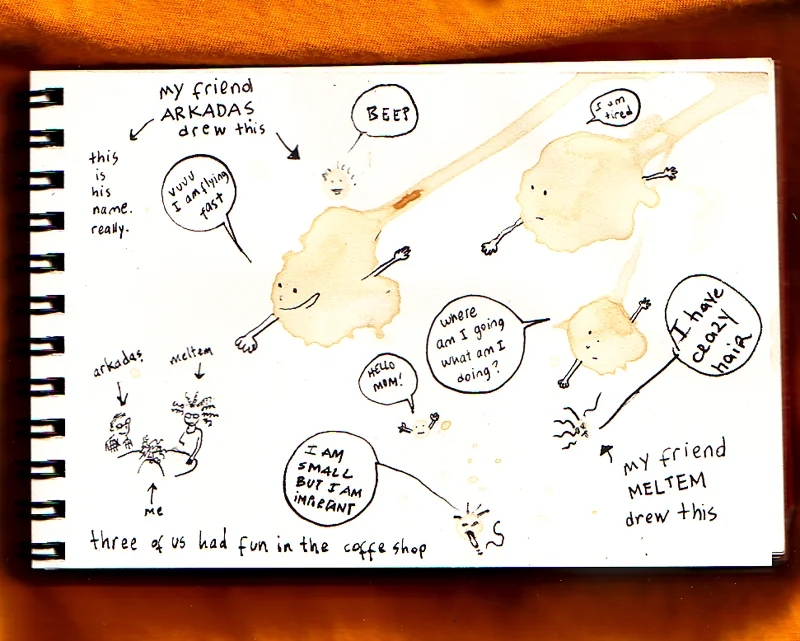 my friend
ARKADAS
drew this
this
is
his
name.
really.
BEEP
I am
tired
VUUU
I am flying
fast
where
am I going
what am I
doing?
I have
crazy
hair
HELLO
MOM!
arkadas
meltem
me
I AM
SMALL
BUT I AM
IMPORTANT
my friend
MELTEM
drew this
three of us had fun in the coffe shop